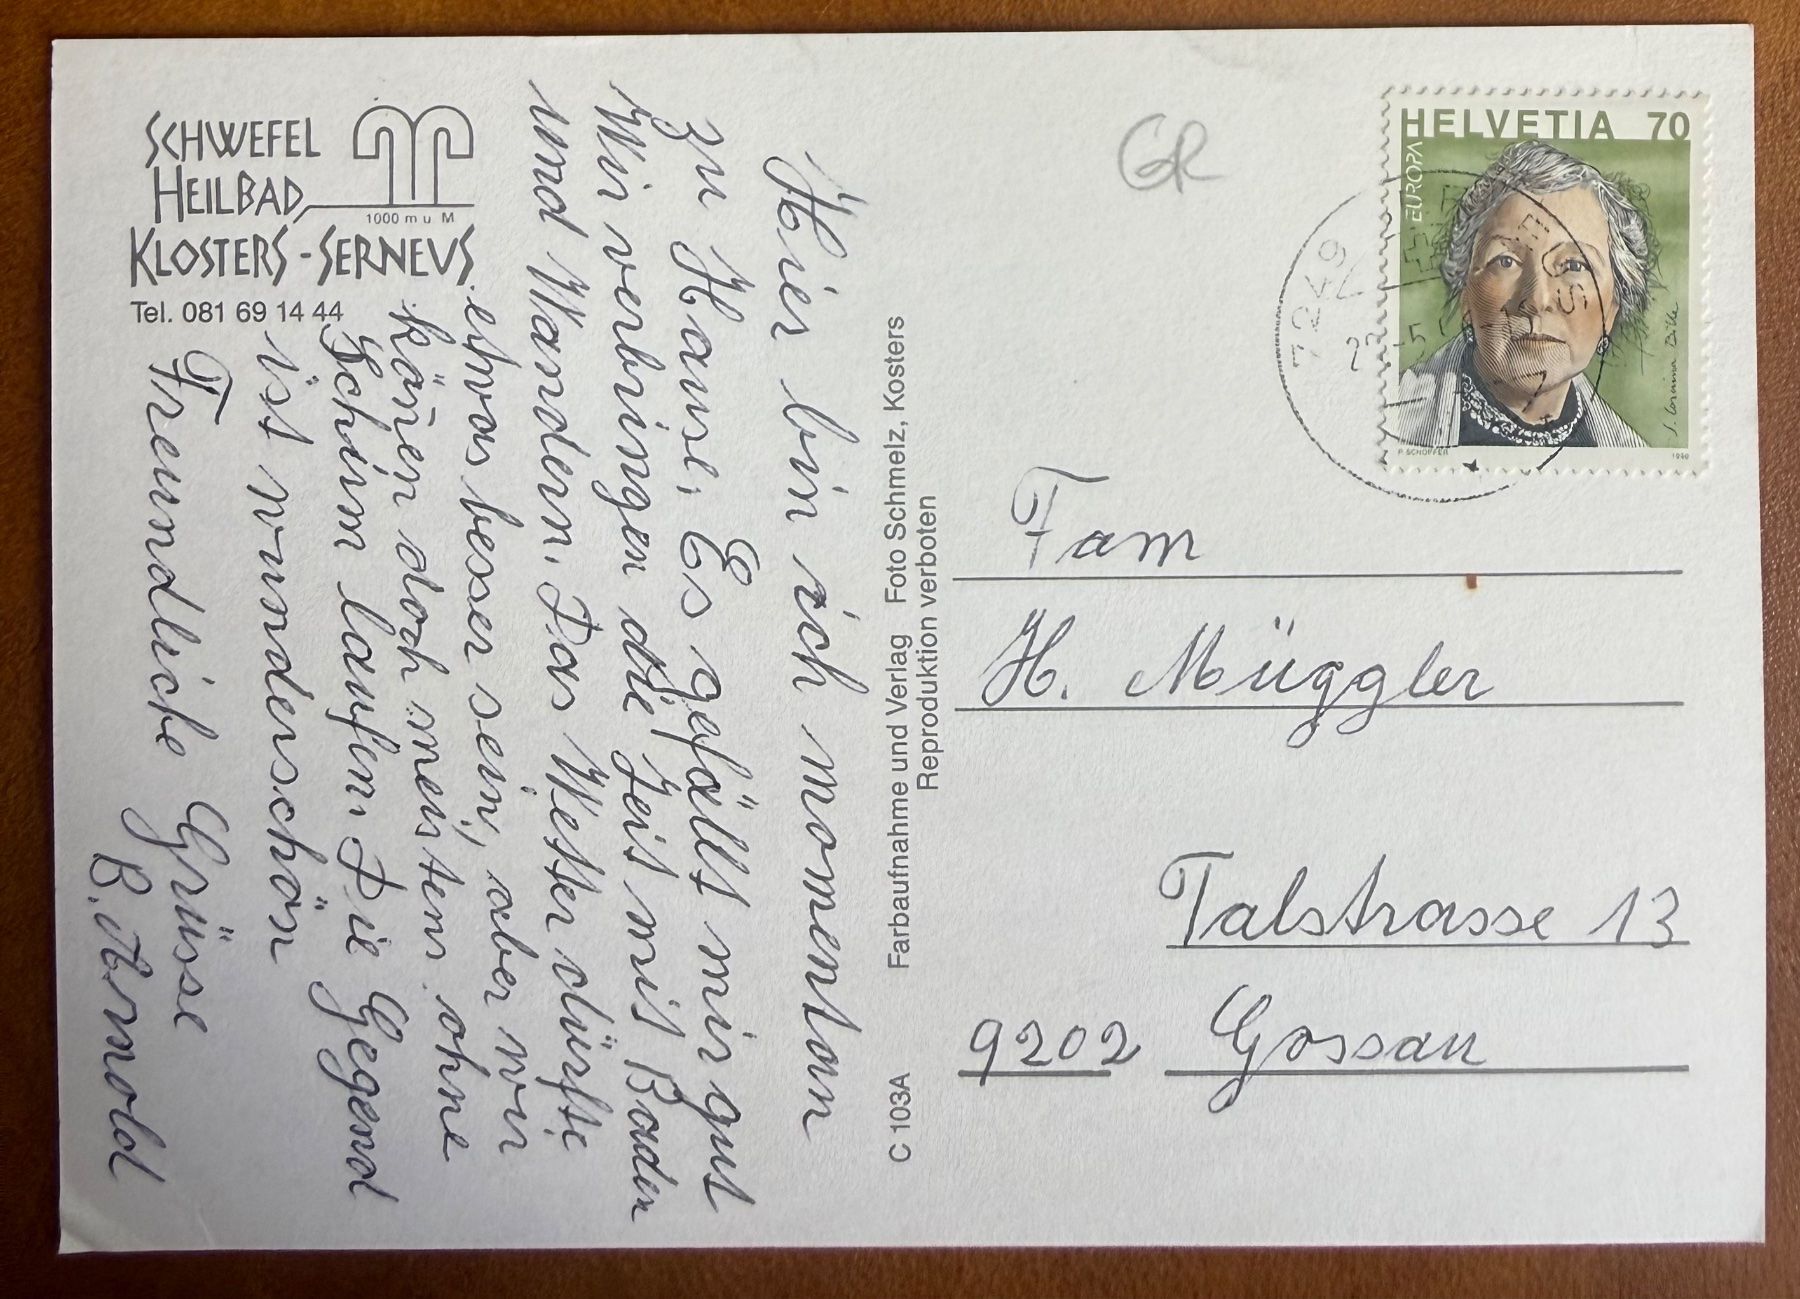 SCHWEFEL
HEILBAD
1000 m ü M
KLOSTERS-SERNEUS
Tel. 081 69 14 44
Hier bin ich momentan
zu Hause. Es gefällt mir gut
Wir verbringen die Zeit mit Baden
und Wandern. Das Wetter dürfte
etwas besser sein, aber wir
kön̄en doch meistens ohne
Schirm laufen. Die Gegend
ist wunderschön
Freundliche Grüsse
B. Arnold
C 103A Farbaufnahme und Verlag Foto Schmelz, Kosters
Reproduktion verboten
GR
HELVETIA 70
EUROPA
P. SCHOPFER
1996
7249
Fam
H. Müggler
Talstrasse 13
9202 Gossau